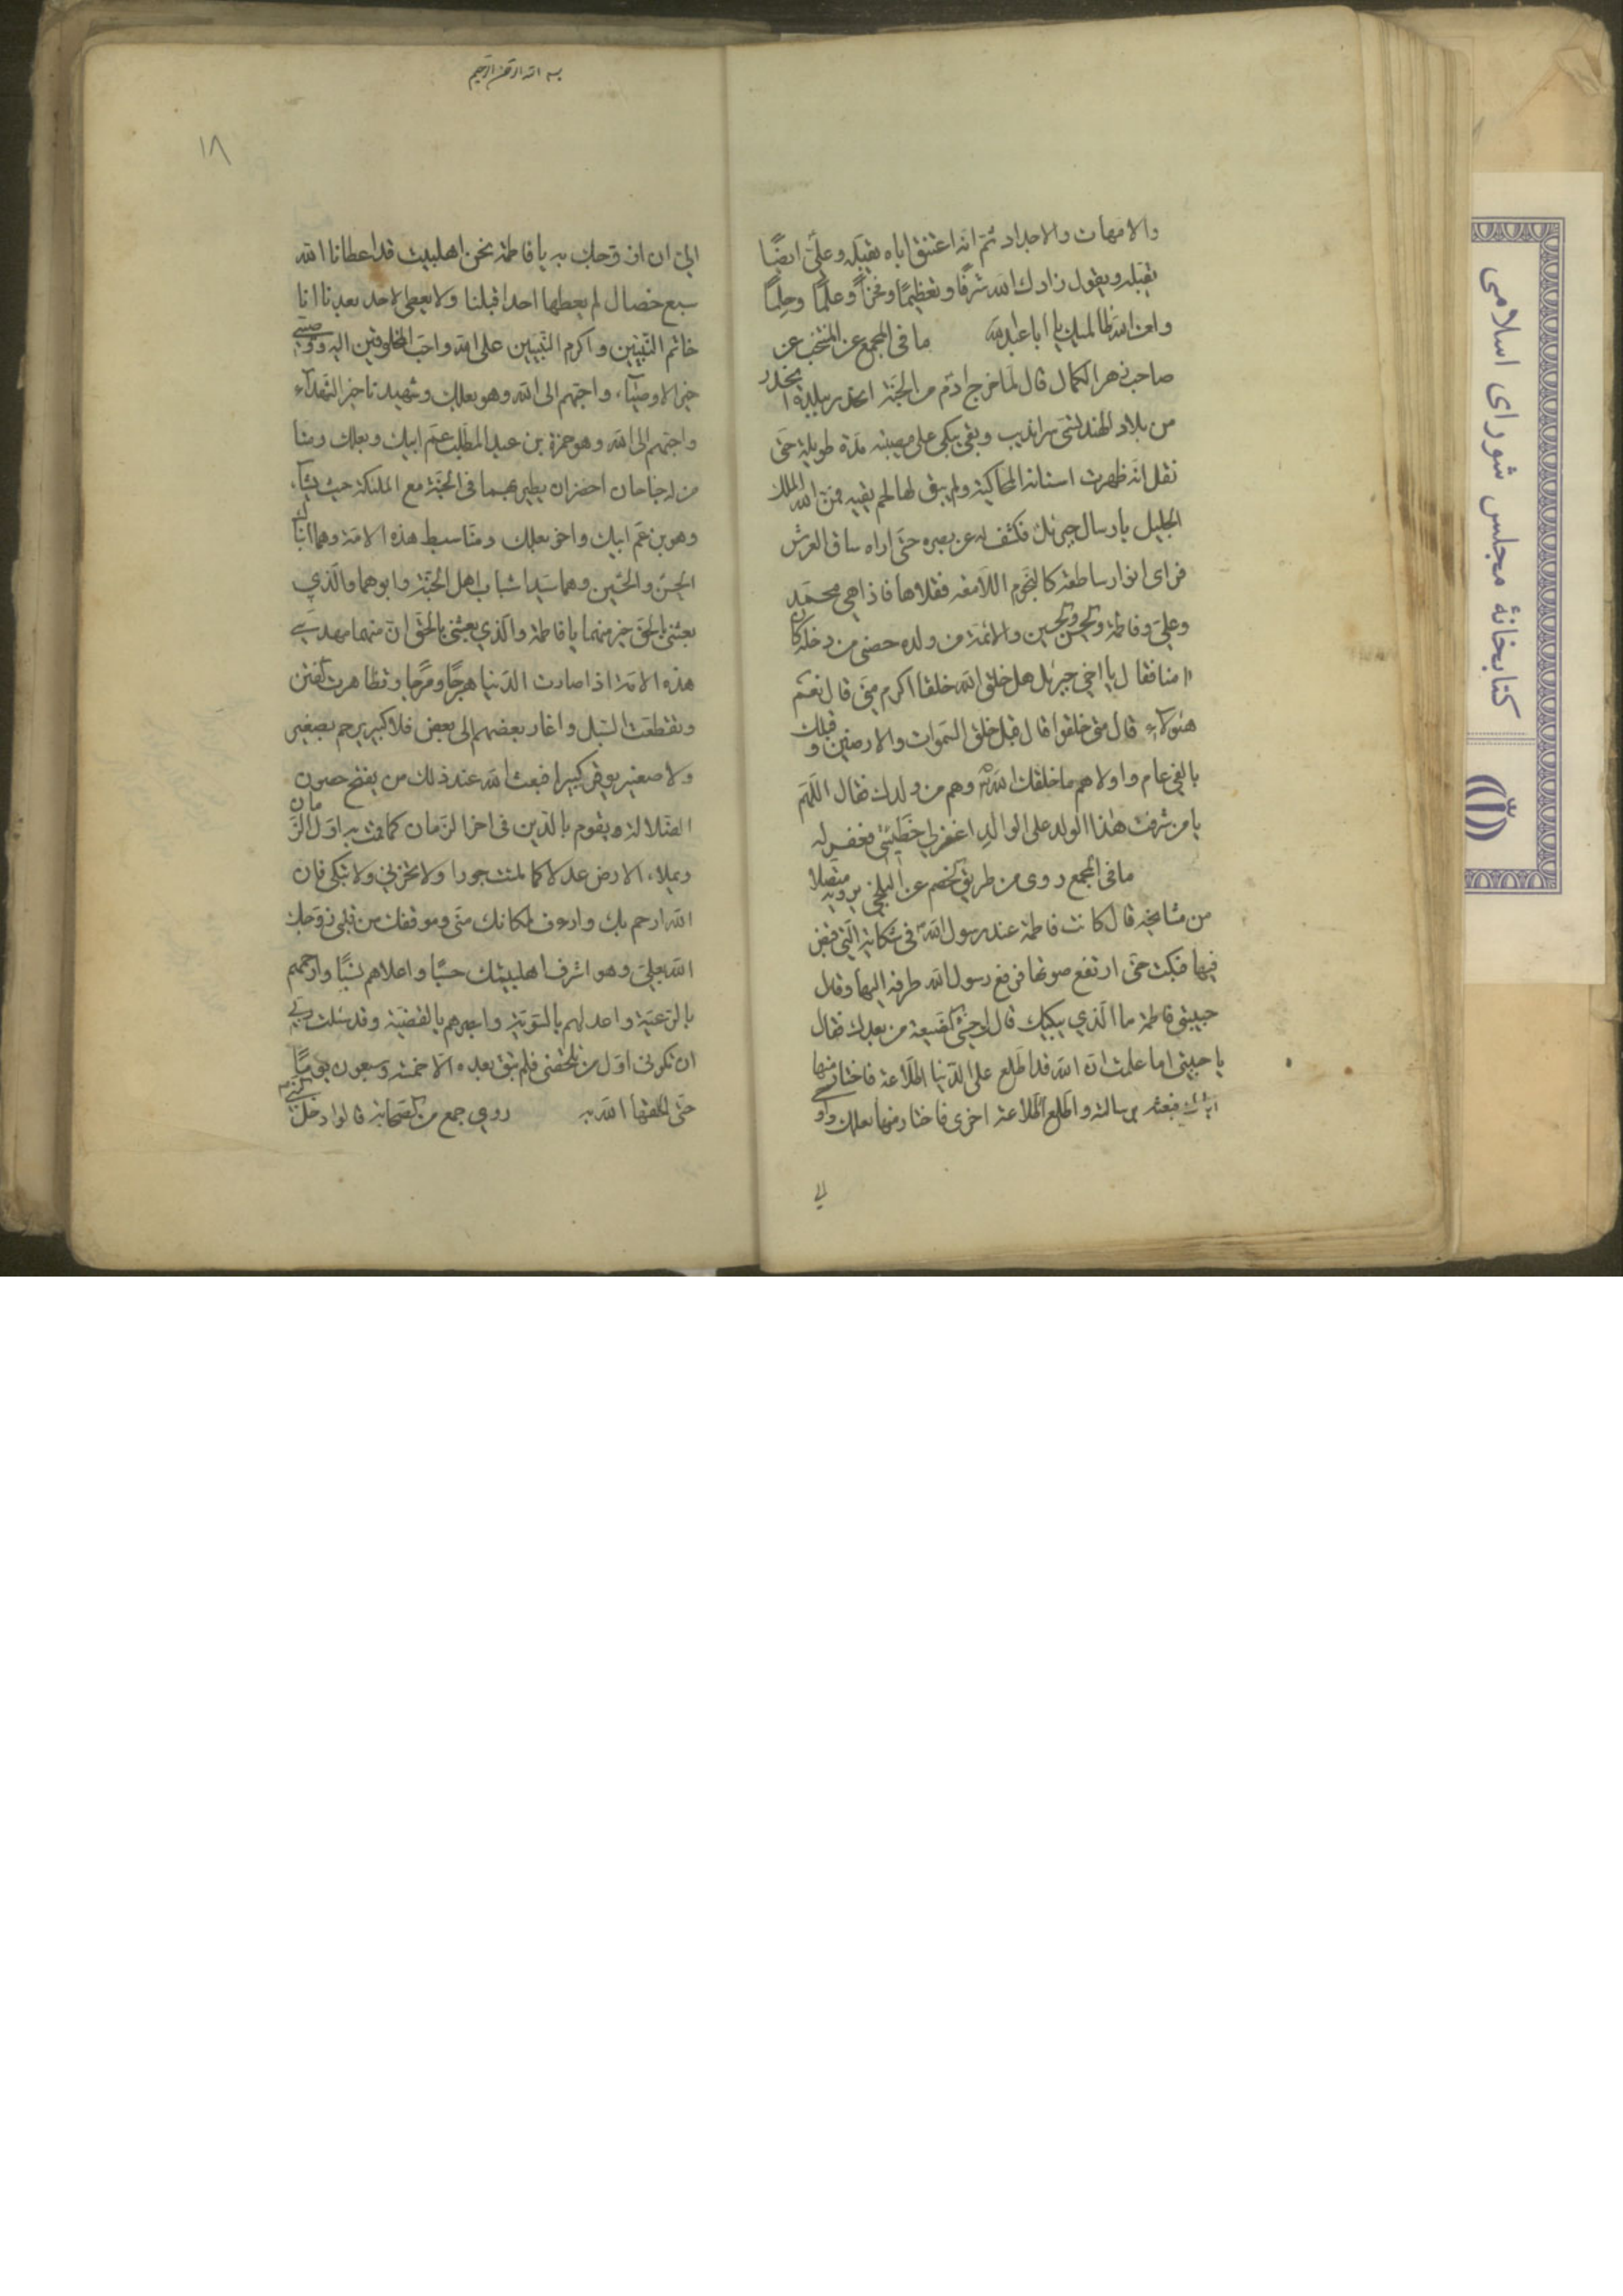 والامهات والاجداد ثم انه اعتنق اباه يقبله وعلي ايضًا
يقبله ويقول زادك الله شرفًا وتعظيمًا وفخرًا وعلمًا وحلمًا
ولعن الله ظالميك يا اباعبدالله ما في المجمع عن المنتخب عن
صاحب زهر الكمال قال لما خرج ادم من الجنة انحدر ببلدة
من بلاد الهند تسمى سرانديب وبقى يبكي على مصيبته مدة طويلة حتى
نقل انه ظهرت اسنانه ولم يبق لها لحم يقيه فمن الله الملك
الجليل بارسال جبرئيل فكشف له عن بصره حتى اراه ساق العرش
فراى انوار ساطعة كالنجوم اللامعة فقلاها فاذا هي محمد
وعلي وفاطمة والحسن والحسين والائمة من ولده حصني من دخله كان
امنا فقال يا اخي جبرئيل هل خلق الله خلقا اكرم مني قال نعم
هؤلاء قال متى خلقوا قال قبل خلق السموات والارضين وقبلك
بالفي عام ولولاهم ما خلقك الله وهم من ولدك فقال اللهم
يا من شرفت هذا الولد على الوالد اغفر لي خطيئتي فغفر له
ما في المجمع روى من طريق الخصم عن البلخي يرويه متصلا
من مشايخه قال كانت فاطمة عند رسول الله في شكايته التي قبض
فيها فبكت حتى ارتفع صوتها فرفع رسول الله طرفه اليها وقال
حبيبتي فاطمة ما الذي يبكيك قالت اخشى الضيعة من بعدك فقال
يا حبيبتي اما علمت ان الله قد اطلع على الدنيا اطلاعة فاختار منها
اباك فبعثه برسالته واطلع اطلاعة اخرى فاختار منها بعلك واو
الي
بسم الله الرحمن الرحيم
١٨
الي ان ازوجك به يا فاطمة نحن اهلبيت قد اعطانا الله
سبع خصال لم يعطها احدا قبلنا ولا يعطى لاحد بعدنا انا
خاتم النبيين واكرم النبيين على الله واحب المخلوقين اليه ووصيي
خير الاوصياء، واحبهم الى الله وهو بعلك وشهيدنا خير الشهداء
واحبهم الى الله وهو حمزة بن عبدالمطلب عم ابيك وبعلك ومنا
من له جناحان اخضران يطير بهما في الجنة مع الملئكة حيث يشاء،
وهو بن عم ابيك واخو بعلك ومنا سبط هذه الامة وهما ابناك
الحسن والحسين وهما سيدا شباب اهل الجنة وابوهما والذي
بعثني بالحق خير منهما يا فاطمة والذي بعثني بالحق ان منهما مهدي
هذه الامة اذا صارت الدنيا هرجًا ومرجًا وتظاهرت الفتن
وتقطعت السبل واغار بعضهم الى بعض فلا كبير يرحم بصغير
ولا صغير يوقر كبيرا فبعث الله عند ذلك من يفتح حصون
الضلالة ويقوم بالدين في اخر الزمان كما قمت به اول الزمان
ويملاء الارض عدلا كما ملئت جورا ولا تحزني ولا تبكي فان
الله ارحم بك وارءف لمكانك مني وموقفك من قلبي زوجك
الله بعلي وهو اشرف اهلبيتك حسبًا واعلاهم نسبًا وارحمهم
بالرعية واعدلهم بالسوية وابصرهم بالقضية وقد سئلت ربي
ان تكوني اول من يلحقني فلم تبق بعده الا خمسة وسبعون يومًا
حتى الحقها الله به روي جمع من الصحابة قالوا دخل
كتابخانهٔ مجلس شورای اسلامی